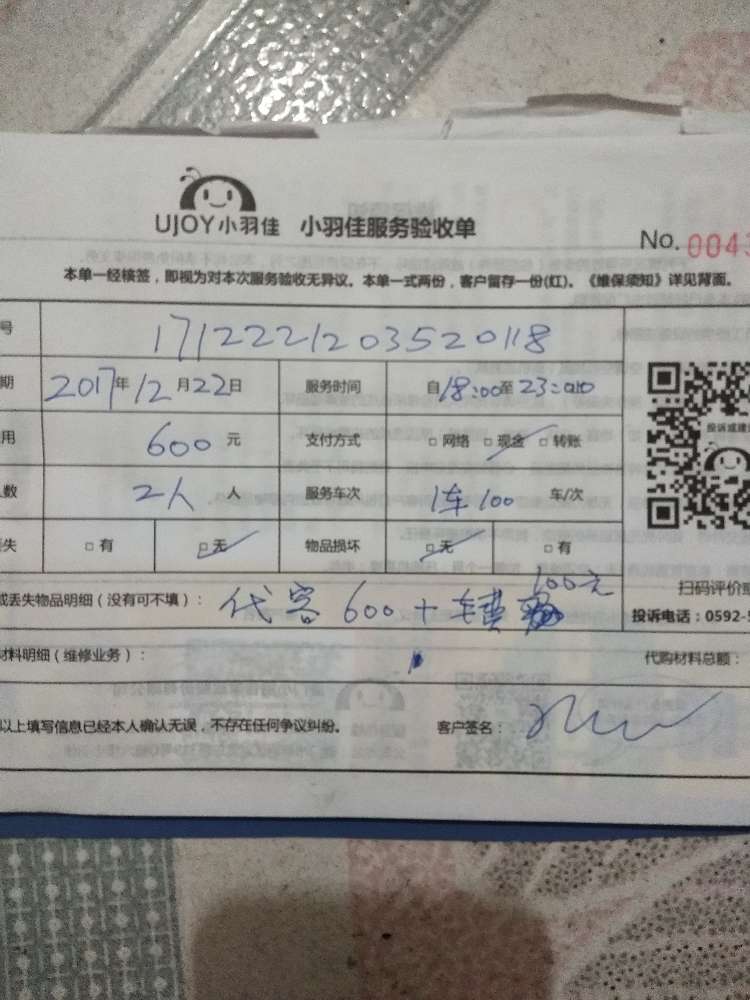 UJOY小羽佳 小羽佳服务验收单
No. 0043
本单一经核签，即视为对本次服务验收无异议。本单一式两份，客户留存一份(红)。《维保须知》详见背面。
号 1712221203520118
期 2017年12月22日 服务时间 自18:00至23:00
用 600元 支付方式 □网络 □现金 □转账
人数 2人 人 服务车次 1车100 车/次
丢失 □有 □无 物品损坏 □无 □有
投诉或建议
扫码评价或
投诉电话：0592-5
或丢失物品明细（没有可不填）： 代客600+车费 100元
材料明细（维修业务）： 代购材料总额：
以上填写信息已经本人确认无误，不存在任何争议纠纷。 客户签名：